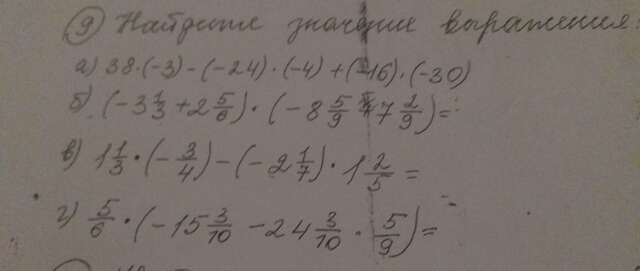 9) Найдите значение выражения:
а) 38·(-3)-(-24)·(-4)+(-16)·(-30)
б) (-3 1/3 + 2 5/6)·(-8 5/9 + 7 2/9)=
в) 1 1/3·(-3/4)-(-2 1/7)·1 2/5=
г) 5/6·(-15 3/10 - 24 3/10·5/9)=